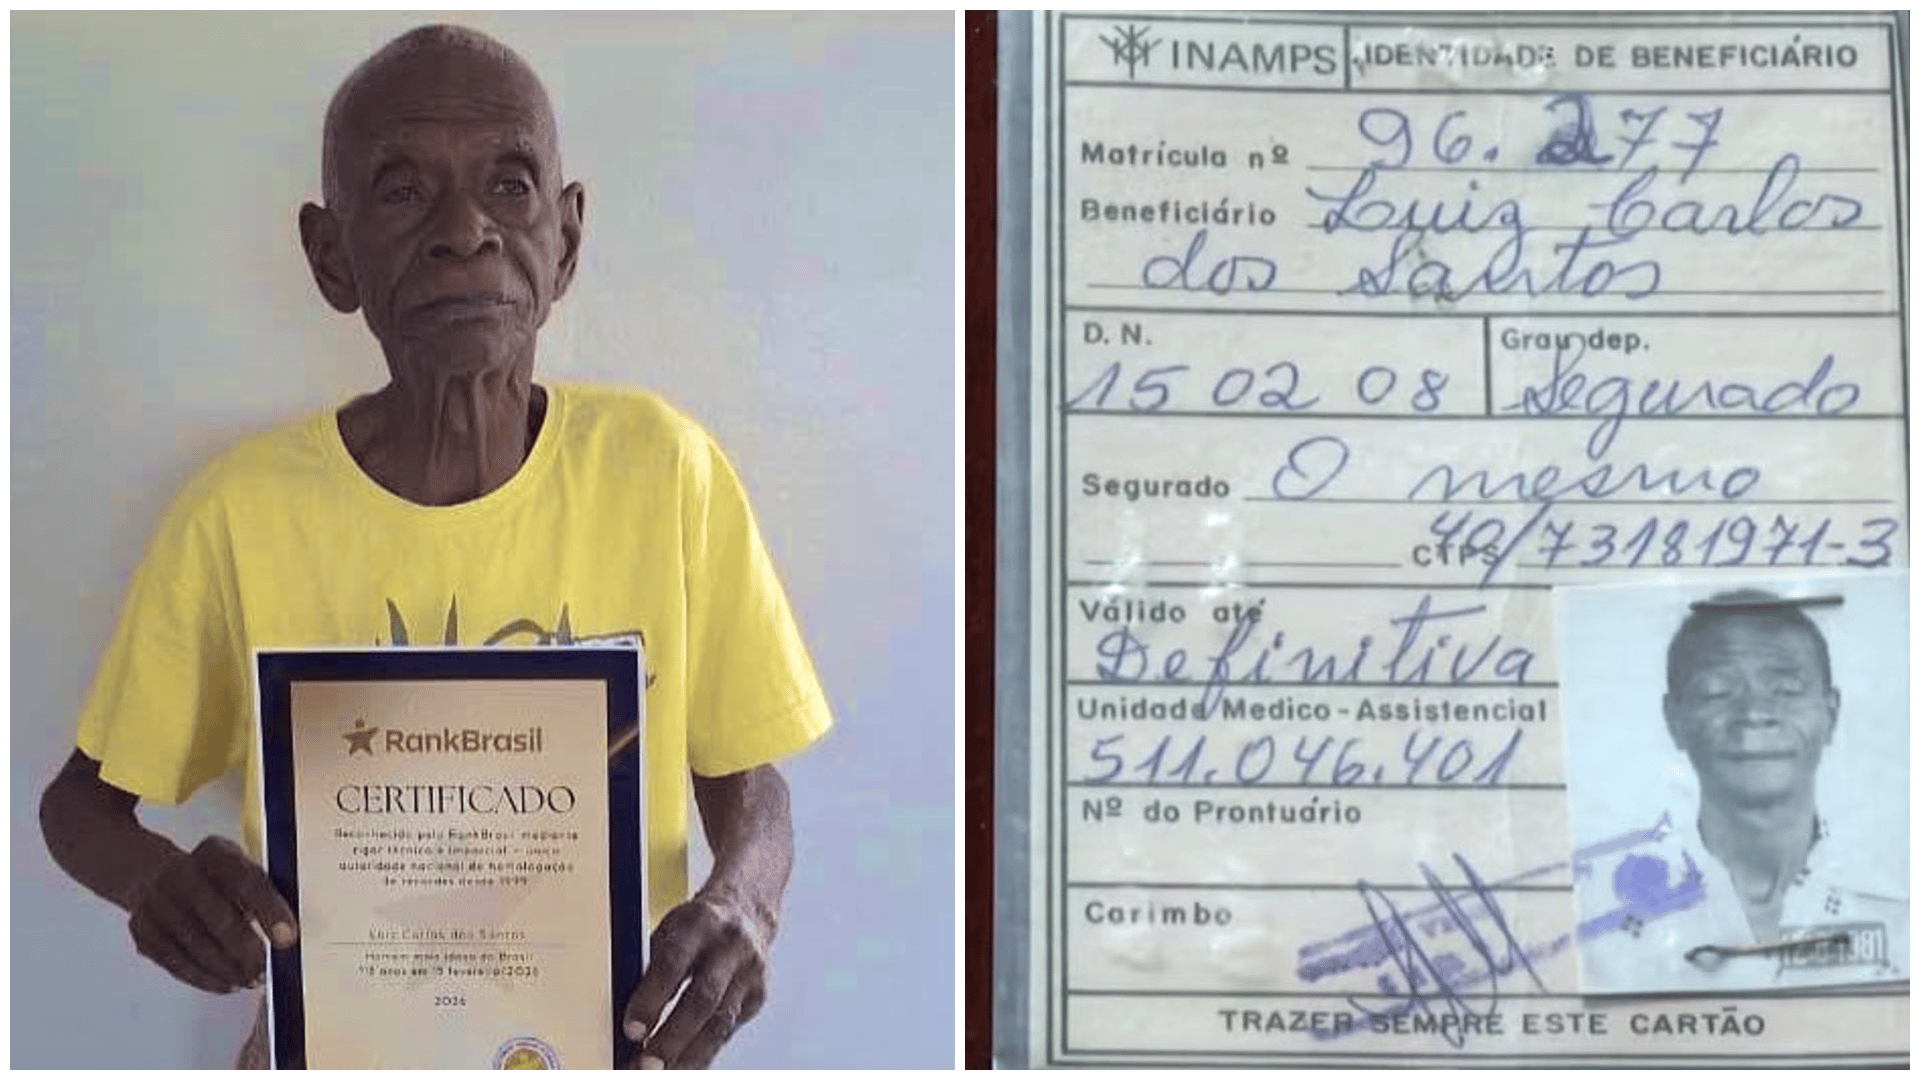 RankBrasil
CERTIFICADO
Reconhecido pelo RankBrasil mediante
rigor técnico e imparcial – única
autoridade nacional de homologação
de recordes desde 1999
Luiz Carlos dos Santos
Homem mais idoso do Brasil
118 anos em 15 fevereiro/2026
2026
INAMPS IDENTIDADE DE BENEFICIÁRIO
Matrícula nº 96.277
Beneficiário Luiz Carlos
dos Santos
D. N. Grau dep.
15 02 08 Segurado
Segurado O mesmo
CTPS 40/73181971-3
Válido até
Definitiva
Unidade Medico-Assistencial
511.046.401
Nº do Prontuário
Carimbo
TRAZER SEMPRE ESTE CARTÃO